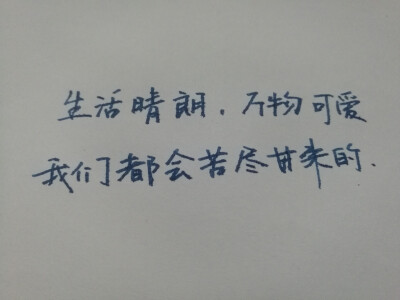 生活晴朗.万物可爱
我们都会苦尽甘来的.